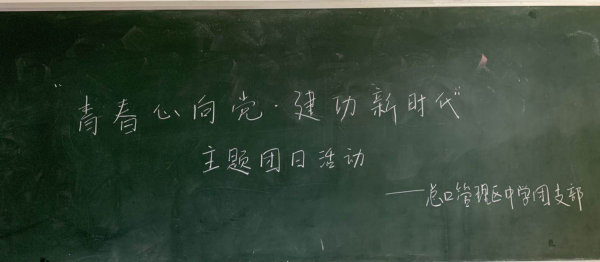 "青春心向党·建功新时代"
主题团日活动
——总口管理区中学团支部